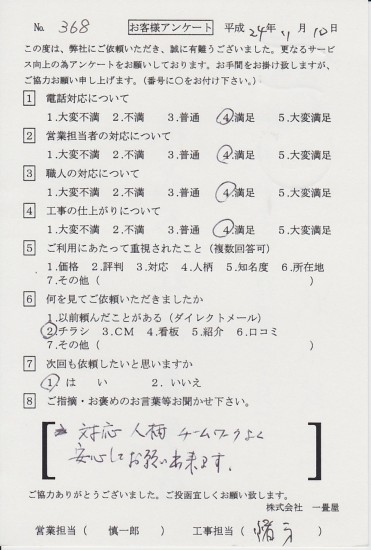 No. 368 お客様アンケート 平成 24年 11月 10日
この度は、弊社にご依頼いただき、誠に有難うございました。更なるサービ
ス向上の為アンケートをお願いしております。お手間をお掛け致しますが、
ご協力お願い申し上げます。(番号に○をお付け下さい。)
1 電話対応について
1.大変不満 2.不満 3.普通 4.満足 5.大変満足
2 営業担当者の対応について
1.大変不満 2.不満 3.普通 4.満足 5.大変満足
3 職人の対応について
1.大変不満 2.不満 3.普通 4.満足 5.大変満足
4 工事の仕上がりについて
1.大変不満 2.不満 3.普通 4.満足 5.大変満足
5 ご利用にあたって重視されたこと(複数回答可)
1.価格 2.評判 3.対応 4.人柄 5.知名度 6.所在地
7.その他( )
6 何を見てご依頼いただきましたか
1.以前頼んだことがある(ダイレクトメール)
2.チラシ 3.CM 4.看板 5.紹介 6.口コミ
7.その他( )
7 次回も依頼したいと思いますか
1.はい 2.いいえ
8 ご指摘・お褒めのお言葉等お聞かせ下さい。
対応 人柄 チームワークよく
安心してお願い出来ます。
ご協力ありがとうございました。ご投函宜しくお願い致します。
株式会社 一畳屋
営業担当( 慎一郎 ) 工事担当( )